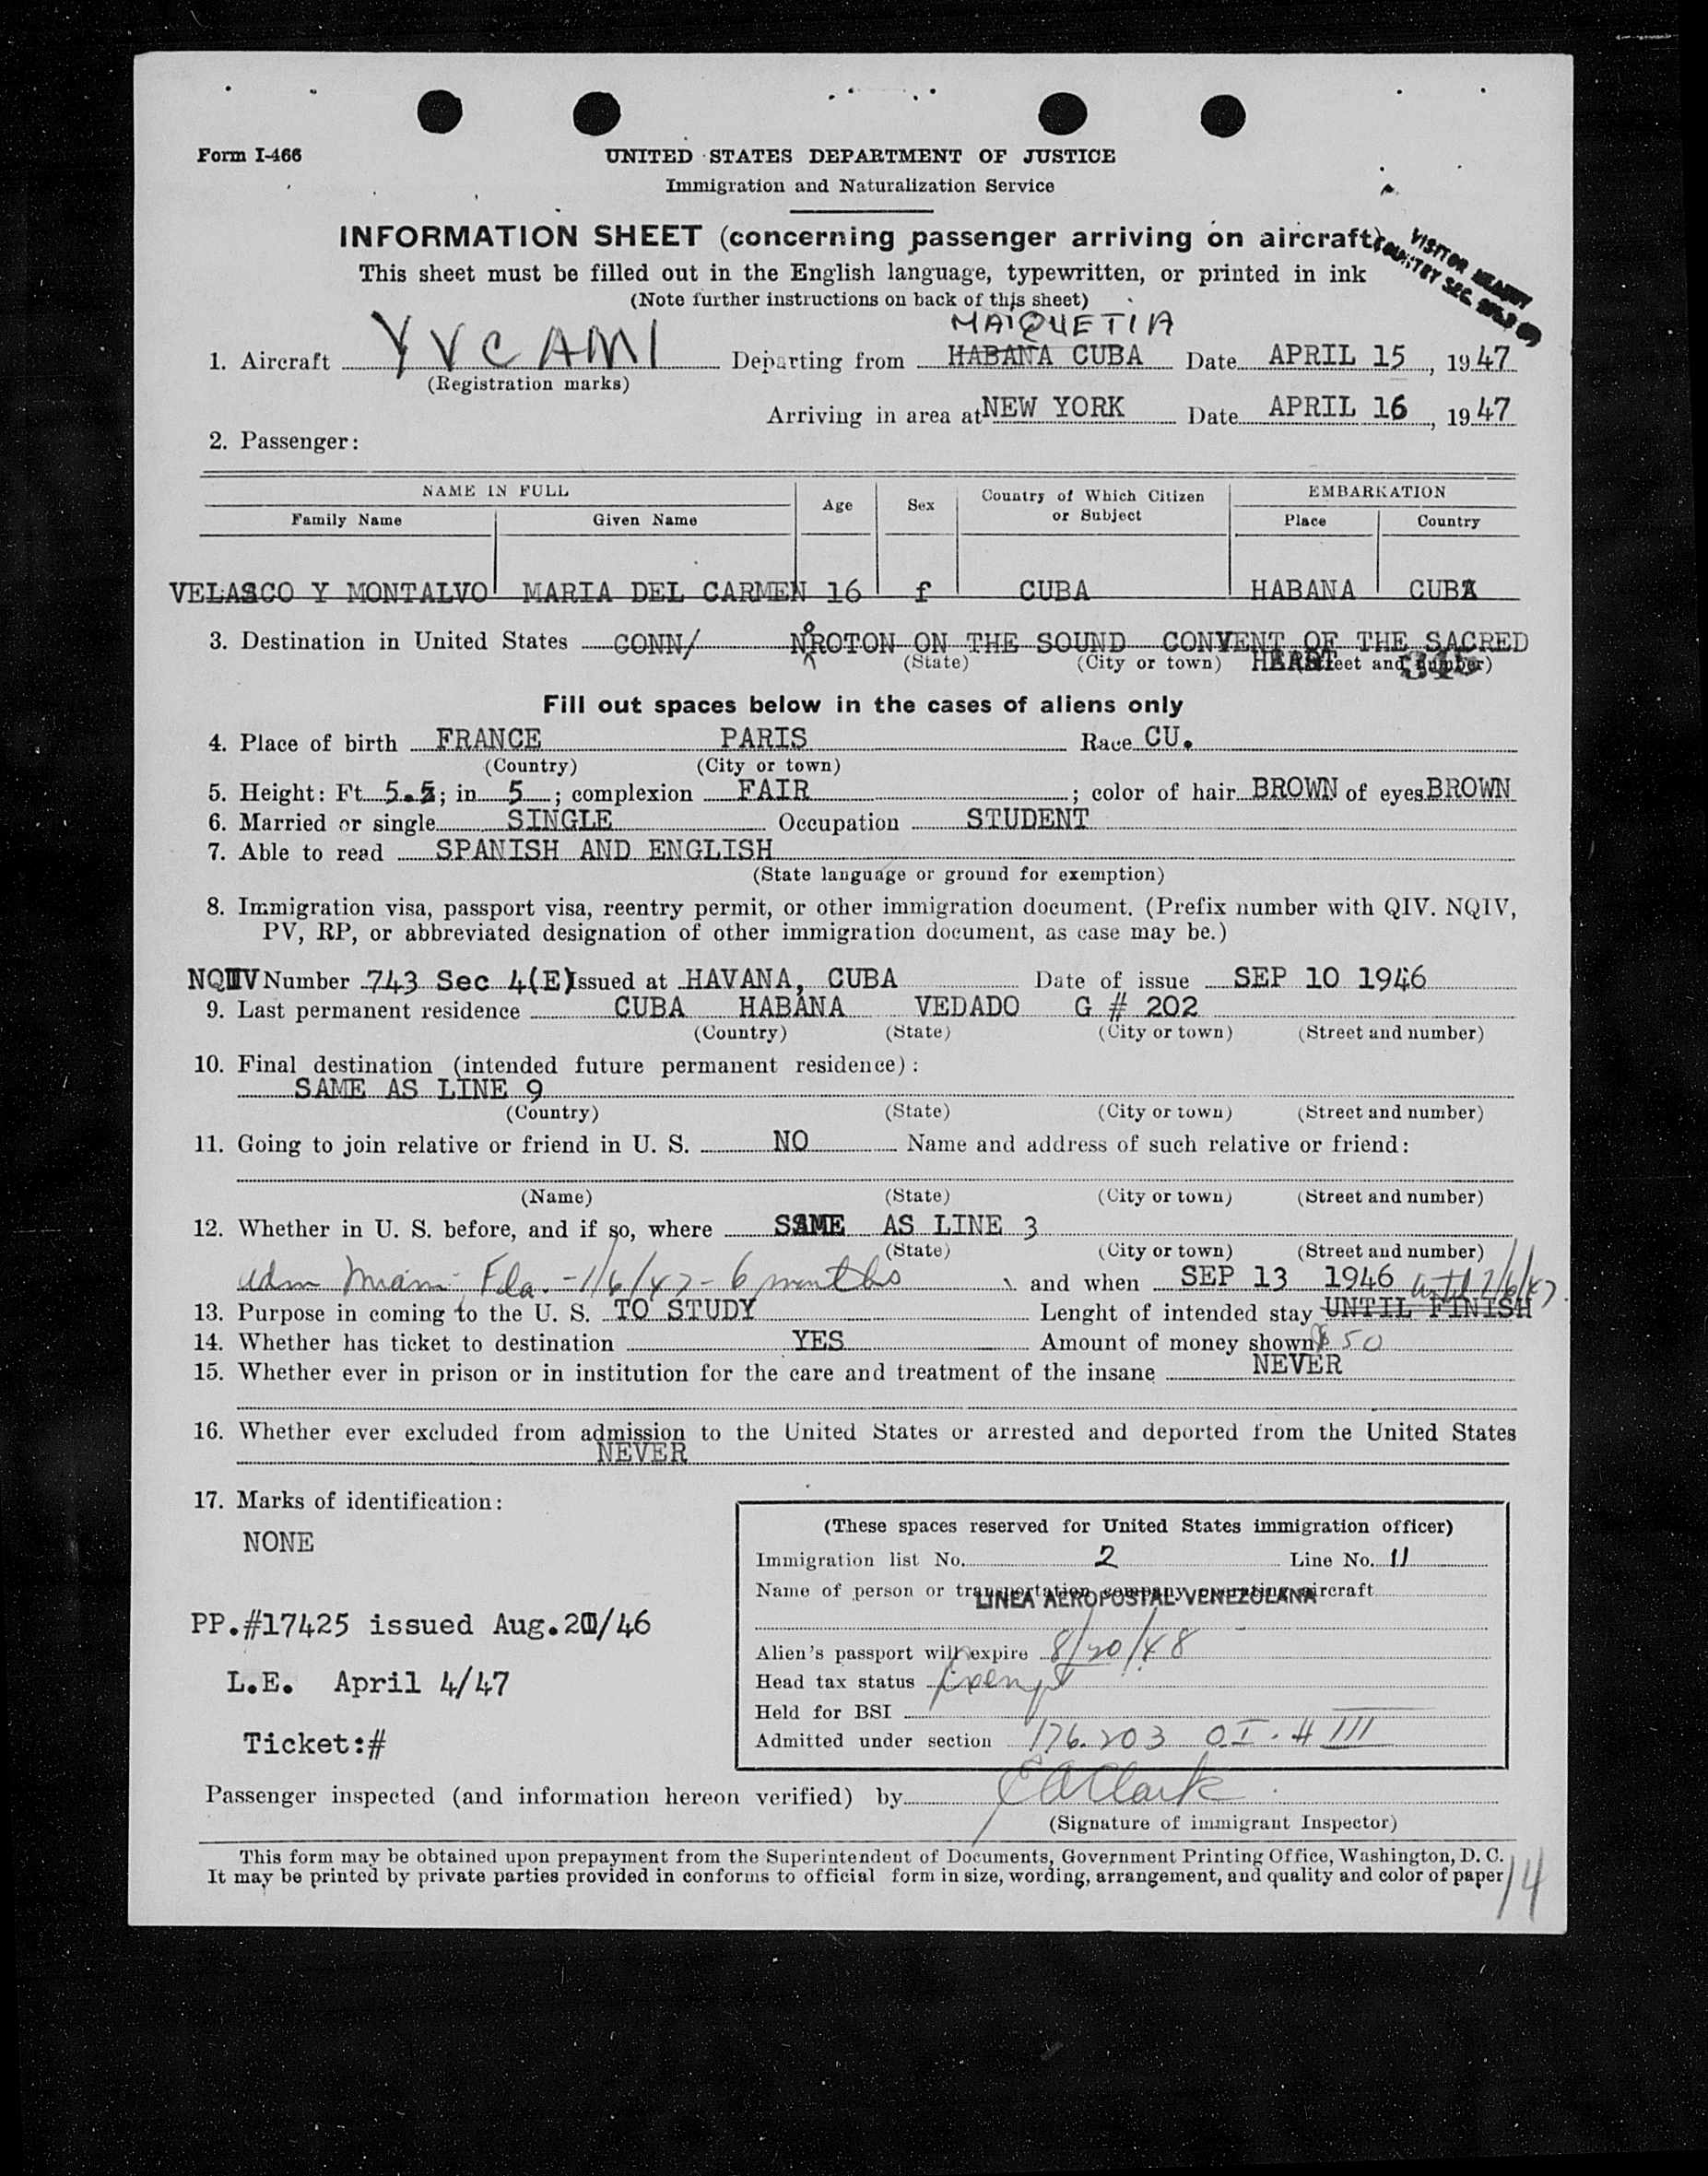 Form I-466
UNITED STATES DEPARTMENT OF JUSTICE
Immigration and Naturalization Service
INFORMATION SHEET (concerning passenger arriving on aircraft)
VISITOR
COUNTRY SEC.
This sheet must be filled out in the English language, typewritten, or printed in ink
(Note further instructions on back of this sheet)
MAIQUETIA
1. Aircraft YVCAMI Departing from HABANA CUBA Date APRIL 15, 1947
(Registration marks)
Arriving in area at NEW YORK Date APRIL 16, 1947
2. Passenger:
NAME IN FULL Age Sex Country of Which Citizen or Subject EMBARKATION
Family Name Given Name Place Country
VELASCO Y MONTALVO MARIA DEL CARMEN 16 f CUBA HABANA CUBA
3. Destination in United States CONN/ NOROTON ON THE SOUND CONVENT OF THE SACRED
(State) (City or town) HEART (Street and number)
345
Fill out spaces below in the cases of aliens only
4. Place of birth FRANCE PARIS Race CU.
(Country) (City or town)
5. Height: Ft 5.5; in 5; complexion FAIR; color of hair BROWN of eyes BROWN
6. Married or single SINGLE Occupation STUDENT
7. Able to read SPANISH AND ENGLISH
(State language or ground for exemption)
8. Immigration visa, passport visa, reentry permit, or other immigration document. (Prefix number with QIV. NQIV,
PV, RP, or abbreviated designation of other immigration document, as case may be.)
NQIV Number 743 Sec 4(E) Issued at HAVANA, CUBA Date of issue SEP 10 1946
9. Last permanent residence CUBA HABANA VEDADO G # 202
(Country) (State) (City or town) (Street and number)
10. Final destination (intended future permanent residence):
SAME AS LINE 9
(Country) (State) (City or town) (Street and number)
11. Going to join relative or friend in U. S. NO Name and address of such relative or friend:
(Name) (State) (City or town) (Street and number)
12. Whether in U. S. before, and if so, where SAME AS LINE 3
(State) (City or town) (Street and number)
Adm Miami, Fla. - 1/6/47 - 6 months and when SEP 13 1946 until 7/6/47.
13. Purpose in coming to the U. S. TO STUDY Lenght of intended stay UNTIL FINISH
14. Whether has ticket to destination YES Amount of money shown $50
15. Whether ever in prison or in institution for the care and treatment of the insane NEVER
16. Whether ever excluded from admission to the United States or arrested and deported from the United States
NEVER
17. Marks of identification:
NONE
PP.#17425 issued Aug.20/46
L.E. April 4/47
Ticket:#
(These spaces reserved for United States immigration officer)
Immigration list No. 2 Line No. 11
Name of person or transportation company operating aircraft
LINEA AEROPOSTAL VENEZOLANA
Alien's passport will expire 8/20/48
Head tax status Exempt
Held for BSI
Admitted under section 176.203 O.I. # III
Passenger inspected (and information hereon verified) by CAClark
(Signature of immigrant Inspector)
This form may be obtained upon prepayment from the Superintendent of Documents, Government Printing Office, Washington, D. C.
It may be printed by private parties provided in conforms to official form in size, wording, arrangement, and quality and color of paper
14